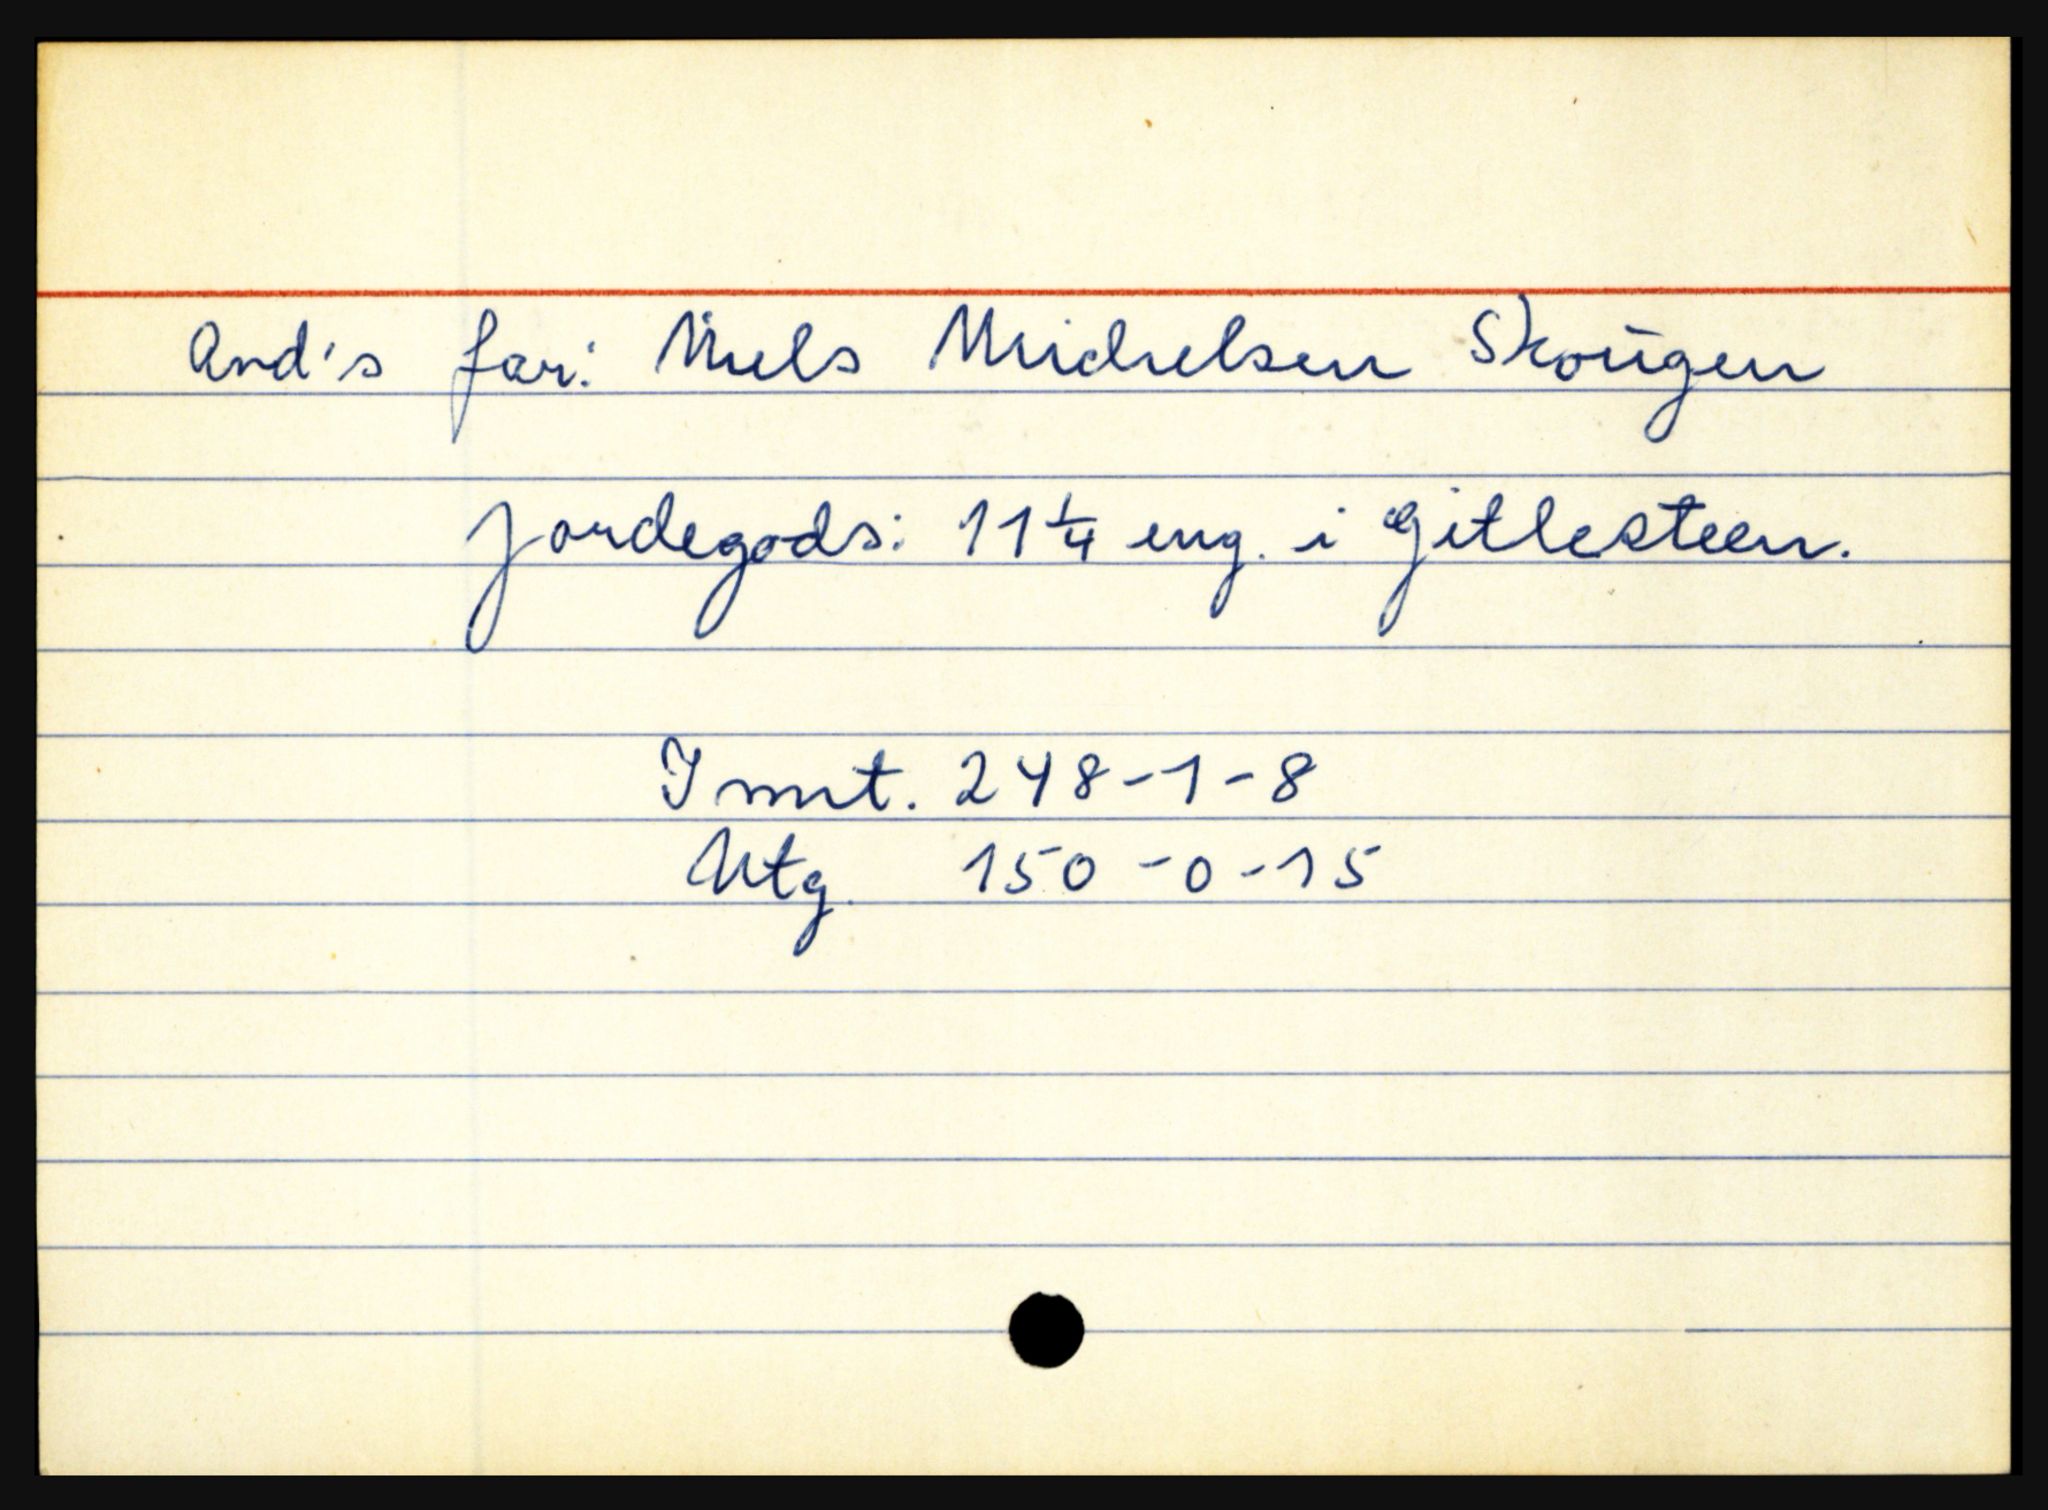 And's far: Niels Michelsen Skougen
Jordegods: 11 1/4 eng. i Gitlesteen.
Innt. 248-1-8
Utg. 150-0-15